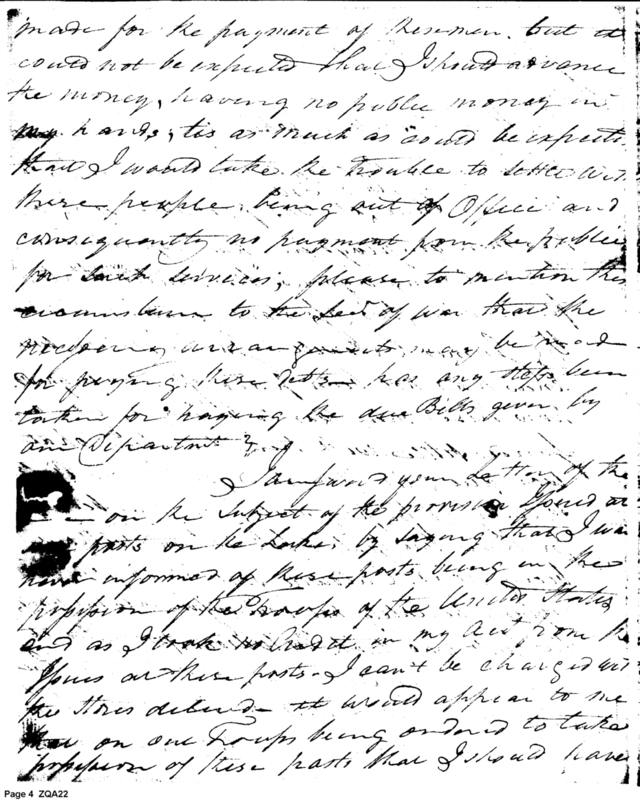 made for the payment of these men. but it
could not be expected that I should advance
the money, having no public money in
my hands, tis as much as could be expected
that I would take the trouble to settle with
these people being out of Office and
consequently no payment from the public
for such services; please to mention this
circumstance to the Secy of war that the
necessary arrangements may be made
for paying these debts has any steps been
taken for paying the due Bills given by
our Department?
I answered your Letter of the
on the Subject of the provision Issued at
posts on the Lakes, by saying that I was
never informed of these posts being in the
possession of the Troops of the United States
and as I took no Credit in my Acct from the
Issues at these posts I can't be charged with
the Stores delivered it would appear to me
that on our Troops being ordered to take
possession of these posts that I should have
Page 4 ZQA22